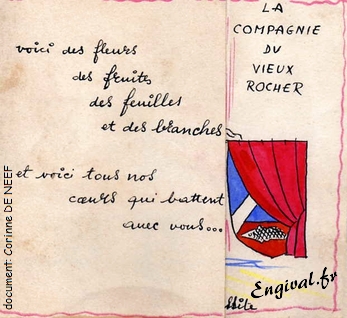 voici des fleurs
des fruits
des feuilles
et des branches
et voici tous nos
cœurs qui battent
avec vous...
LA
COMPAGNIE
DU
VIEUX
ROCHER
Engival.fr
document: Corinne DE NEEF